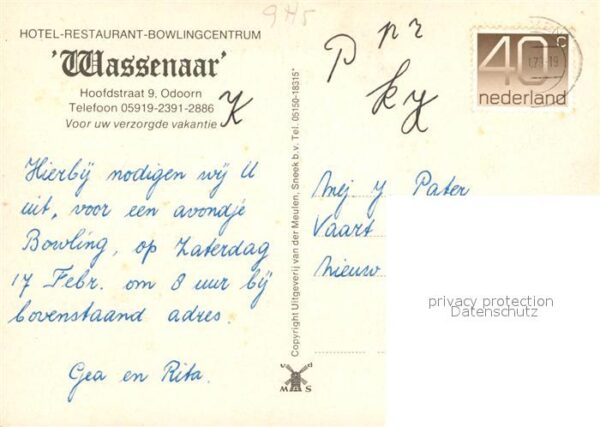 9H5
HOTEL-RESTAURANT-BOWLINGCENTRUM
'Wassenaar'
Hoofdstraat 9, Odoorn
Telefoon 05919-2391-2886
Voor uw verzorgde vakantie
Hierbij nodigen wij U
uit, voor een avondje
Bowling, op Zaterdag
17 Febr. om 8 uur bij
bovenstaand adres.
Gea en Rita.
Copyright Uitgeverij van der Meulen, Sneek b.v. Tel. 05150-18315*
v d
M S
P pr
k
40c
nederland
Mej y Pater
Vaart
Nieuw
privacy protection
Datenschutz